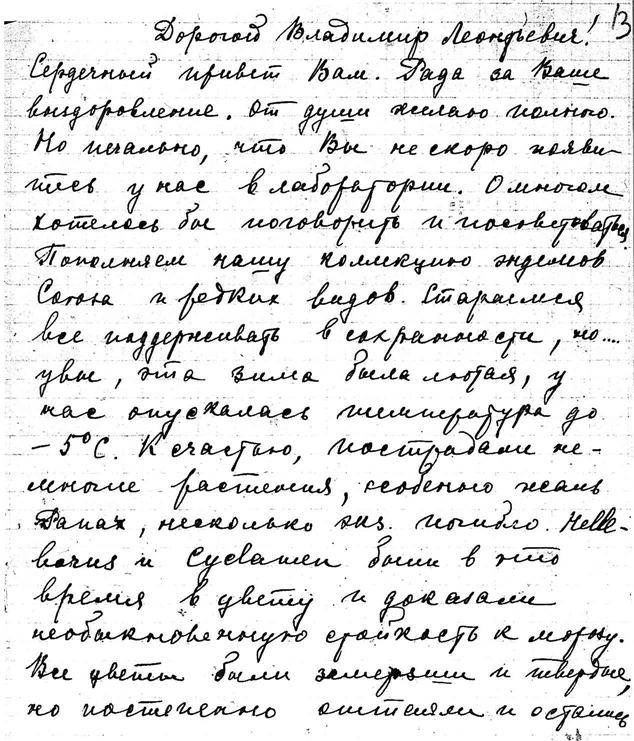 13
Дорогой Владимир Леонтьевич!
Сердечный привет Вам. Рада за Ваше
выздоровление. От души желаю полного.
Но печально, что Вы не скоро появи-
тесь у нас в лаборатории. О многом
хотелось бы поговорить и посоветоваться.
Пополняем нашу коллекцию эндемов
Союза и редких видов. Стараемся
все поддерживать в сохранности, но....
увы, эта зима была лютая, у
нас опускалась температура до
-5°С. К счастью, пострадали не-
многие растения, особенно жаль
Panax, несколько экз. погибло. Helle-
borus и Cyclamen были в это
время в цвету и доказали
необыкновенную стойкость к морозу.
Все цветы были замерзшие и твердые,
но постепенно оттаяли и остались